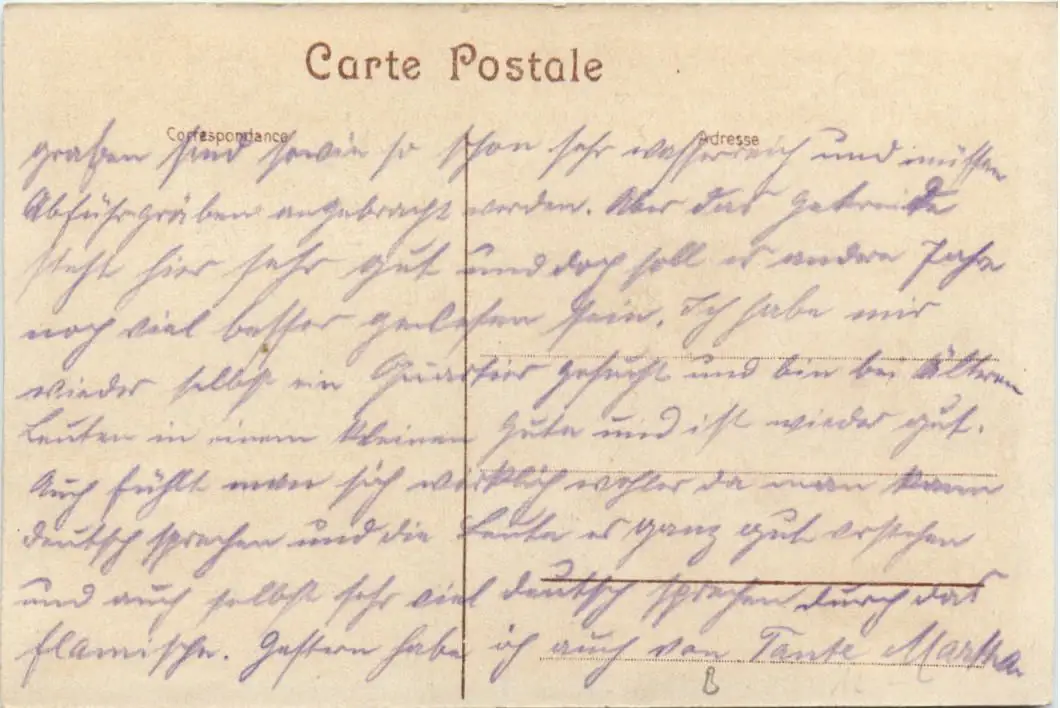 Carte Postale
Correspondance
Adresse
graben sind sowie so schon sehr wasserreich und müssen
Abführgräben angebracht werden. Aber das Getreide
steht hier sehr gut und doch soll es andere Jahre
noch viel besser gewesen sein. Ich habe mir
wieder selbst ein Quartier gesucht und bin bei Älteren
Leuten in einem kleinen Gute und ist wieder gut.
Auch fühlt man sich wirklich wohler da man kann
deutsch sprechen und die Leute es ganz gut verstehen
und auch selbst sehr viel deutsch sprechen durch das
flamische. Gestern habe ich auch von Tante Martha